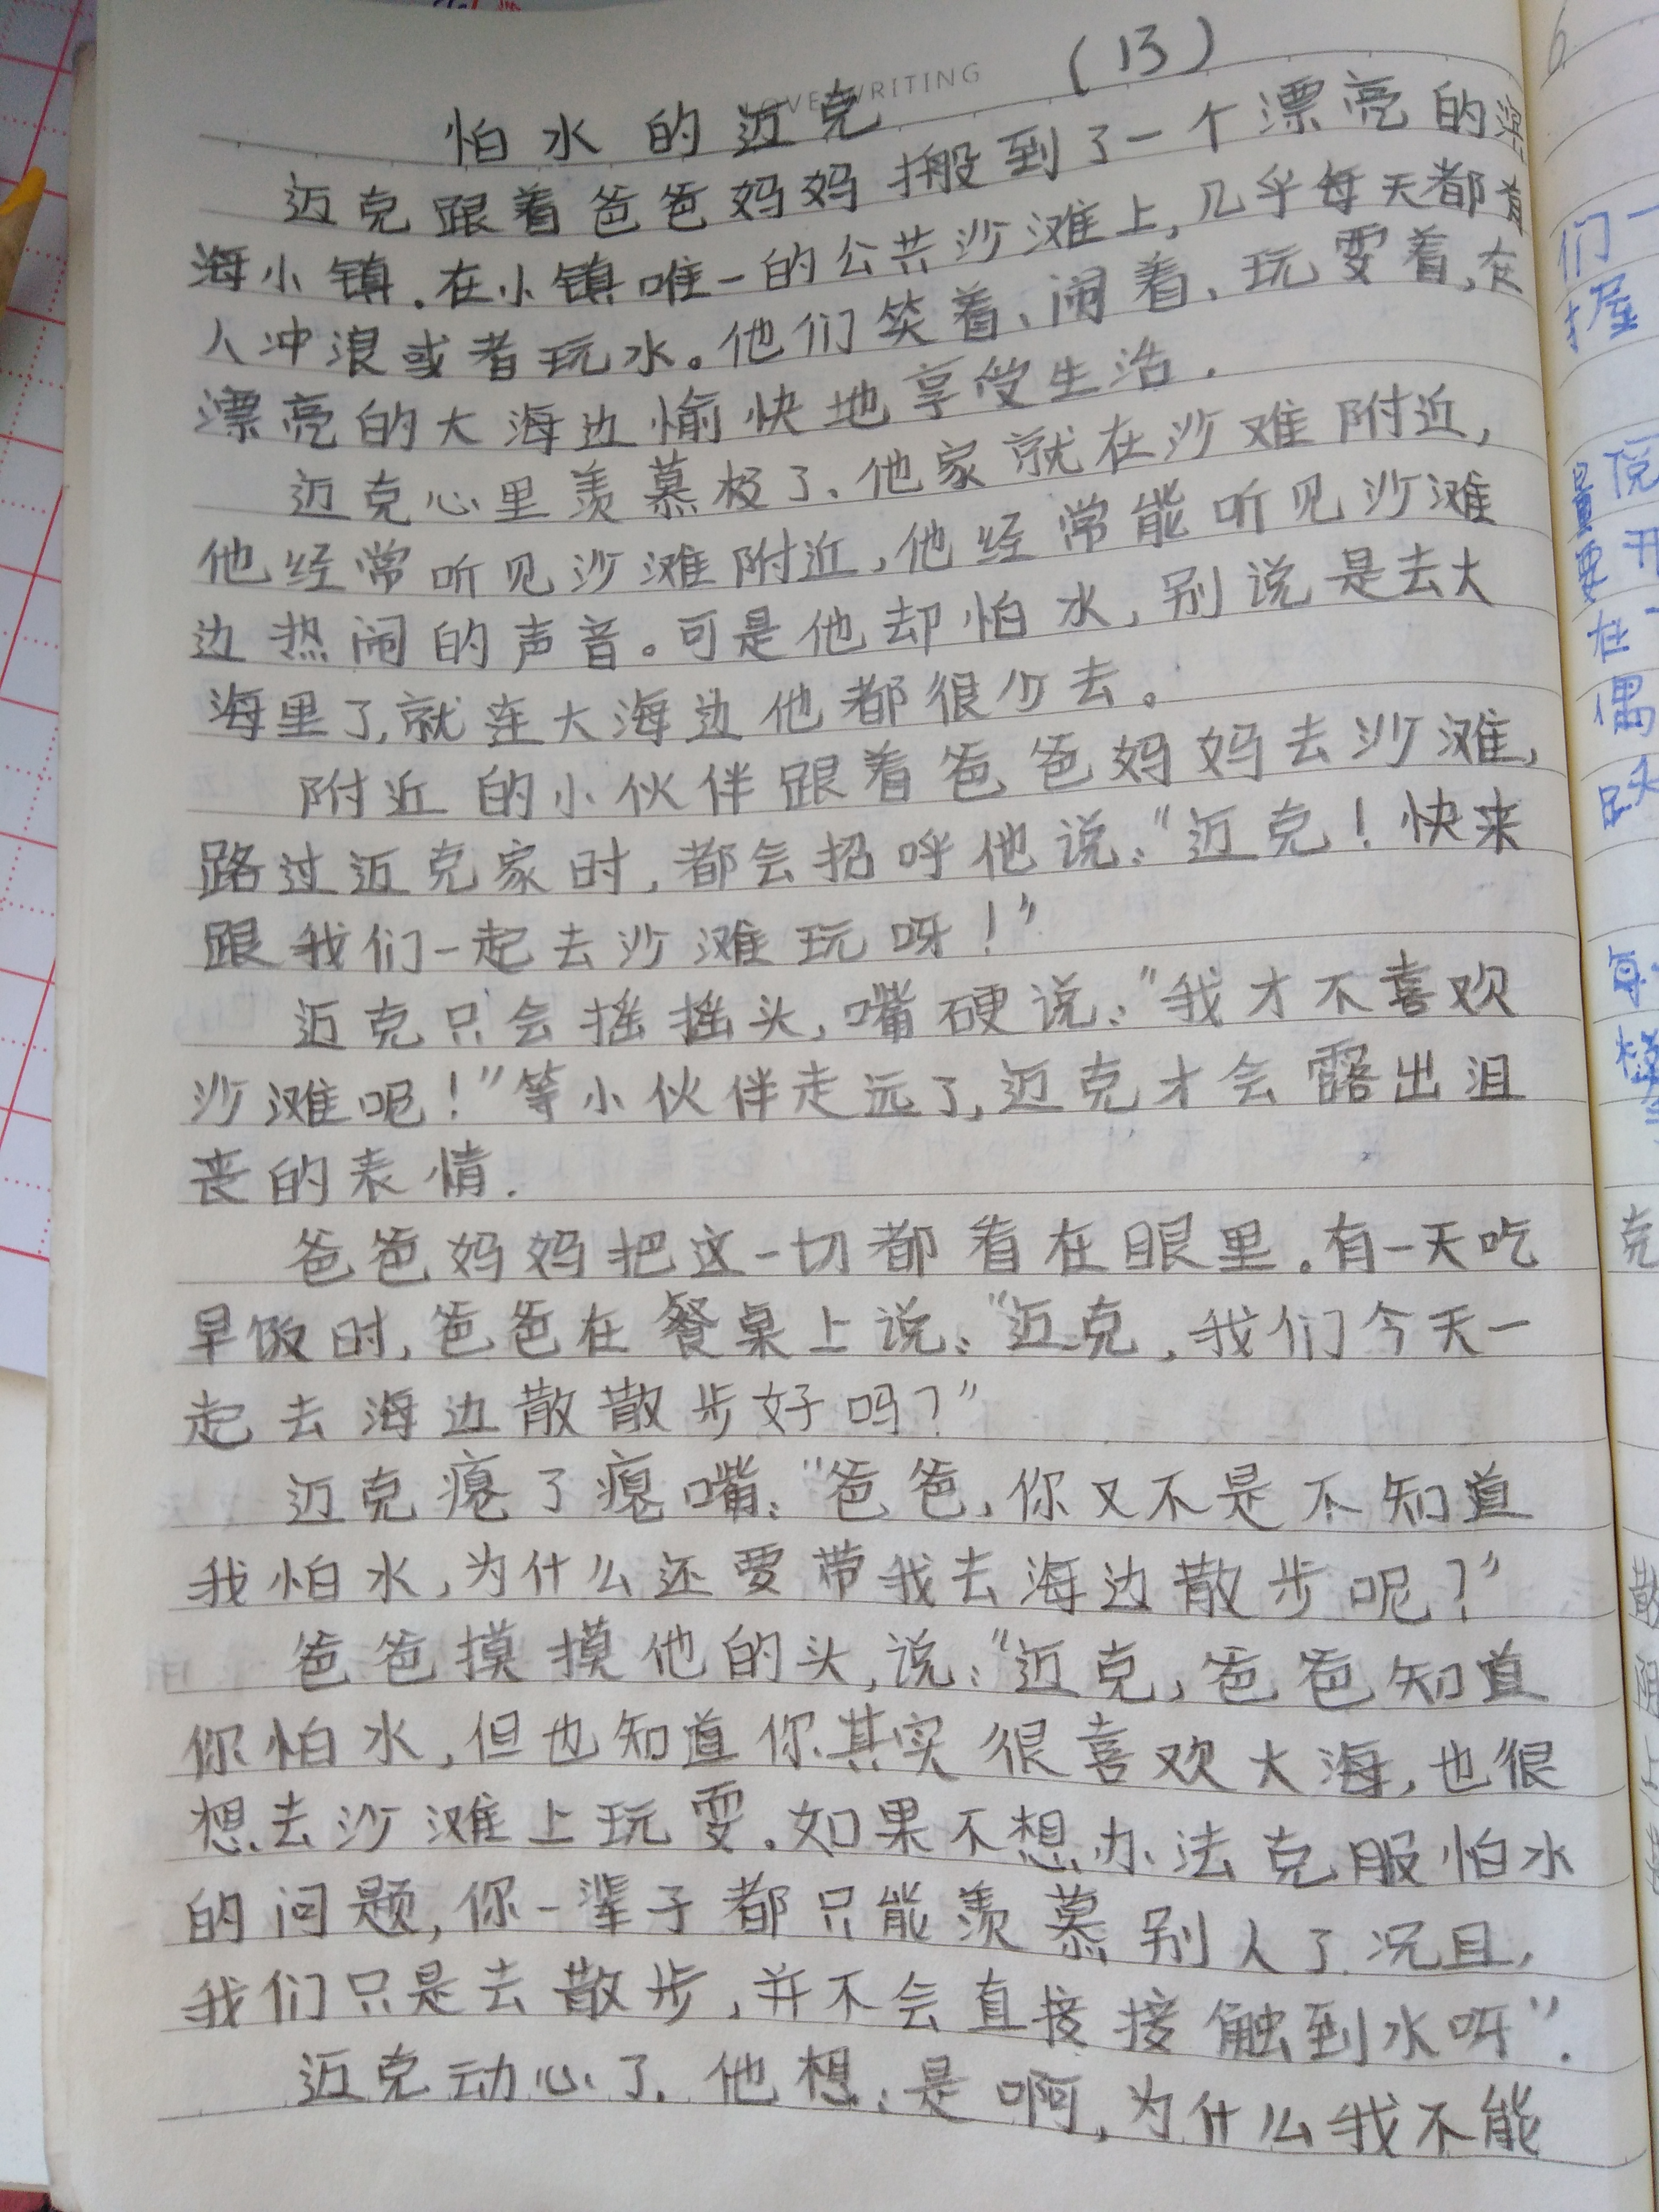 (13)
LOVE WRITING
怕水的迈克
迈克跟着爸爸妈妈搬到了一个漂亮的滨
海小镇.在小镇唯一的公共沙滩上,几乎每天都有
人冲浪或者玩水。他们笑着、闹着、玩耍着,在
漂亮的大海边愉快地享受生活.
迈克心里羡慕极了、他家就在沙难附近,
他经常听见沙滩附近,他经常能听见沙滩
边热闹的声音。可是他却怕水,别说是去大
海里了,就连大海边他都很少去。
附近的小伙伴跟着爸爸妈妈去沙滩,
路过迈克家时,都会招呼他说:“迈克!快来
跟我们一起去沙滩玩呀!”
迈克只会摇摇头,嘴硬说:“我才不喜欢
沙滩呢!”等小伙伴走远了,迈克才会露出沮
丧的表情.
爸爸妈妈把这一切都看在眼里.有一天吃
早饭时,爸爸在餐桌上说:“迈克,我们今天一
起去海边散散步好吗?”
迈克瘪了瘪嘴:“爸爸,你又不是不知道
我怕水,为什么还要带我去海边散步呢?”
爸爸摸摸他的头,说:“迈克,爸爸知道
你怕水,但也知道你其实很喜欢大海,也很
想去沙滩上玩耍.如果不想办法克服怕水
的问题,你一辈子都只能羡慕别人了.况且,
我们只是去散步,并不会直接接触到水呀”.
迈克动心了.他想:是啊,为什么我不能
们一
握
悦
重要开
在
偶
每
克
散